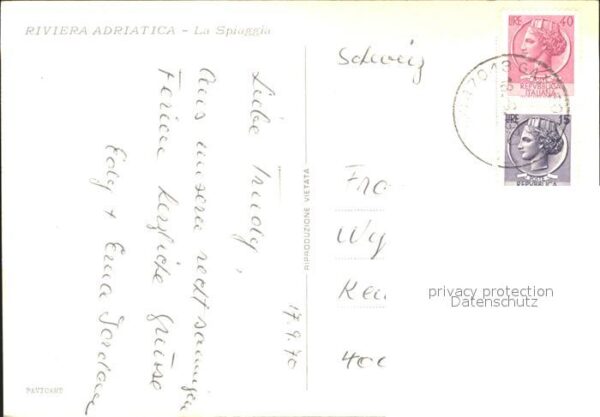 RIVIERA ADRIATICA - La Spiaggia
17.9.70
Liebe Trudy,
Aus unsern recht sonnigen
Ferien herzliche Grüsse
Edy + Erna Jordan
RIPRODUZIONE VIETATA
PAVICART
Schweiz
Fra
Wy
Ken
400
LIRE 40
REPUBBLICA
ITALIANA
LIRE 15
POSTE
REPUBBLICA
37013 CA
privacy protection
Datenschutz